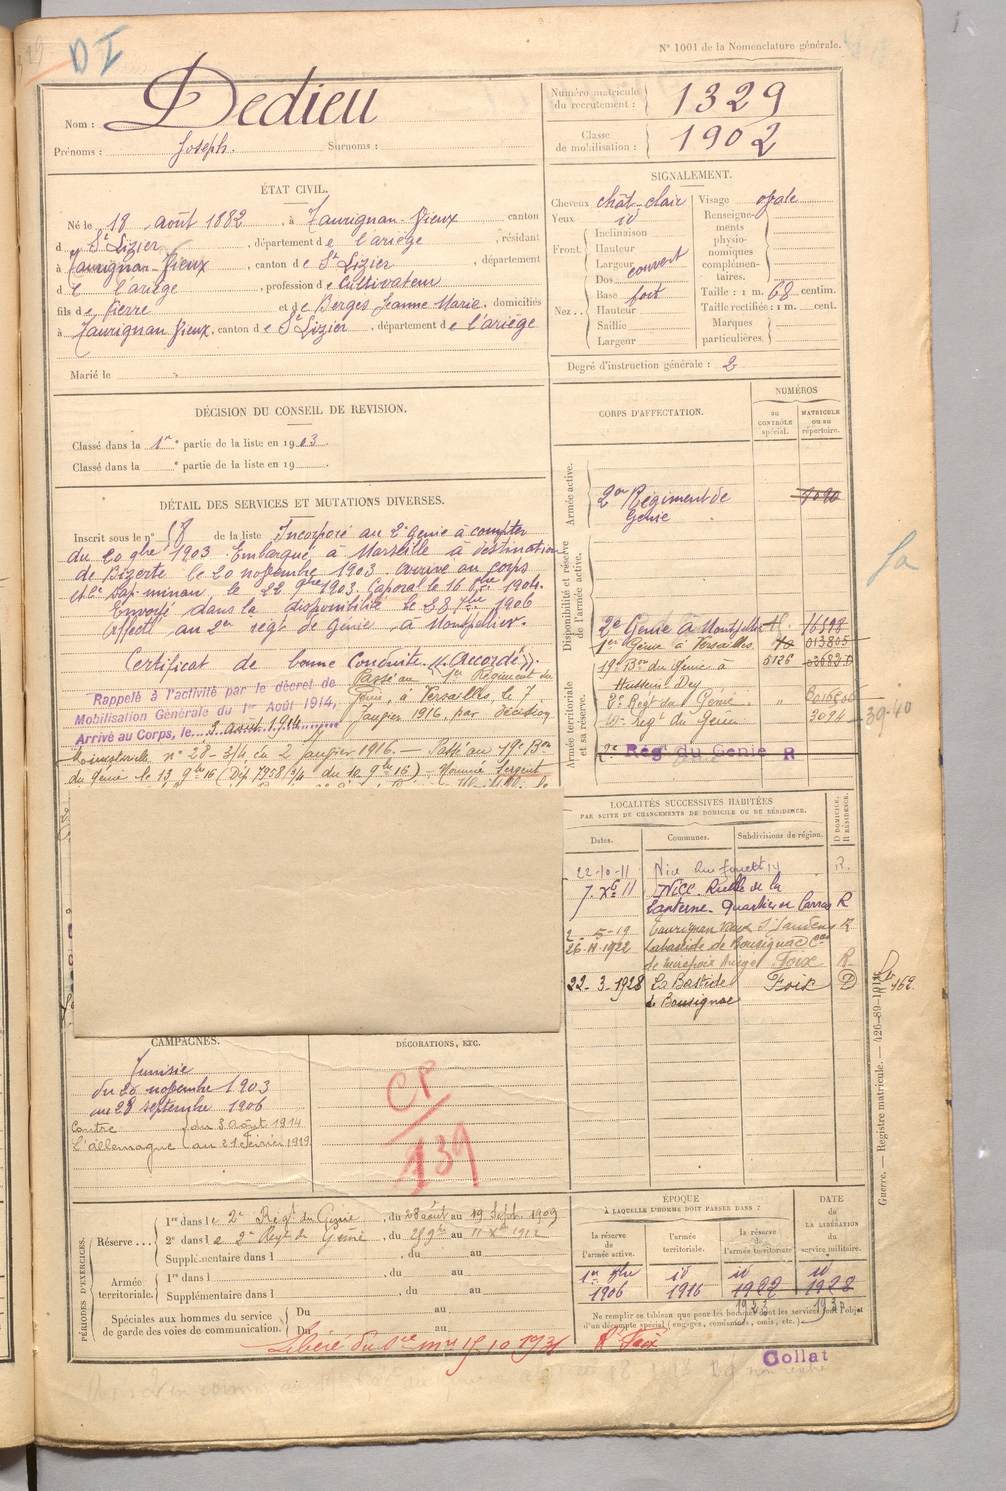 DI
N° 1001 de la Nomenclature générale.
Nom : Dedieu
Prénoms : Joseph. Surnoms :
Numéro matricule du recrutement : 1329
Classe de mobilisation : 1902
ÉTAT CIVIL.
Né le 18 août 1882, à Taurignan-Vieux canton
d St Lizier, département de l'ariège, résidant
à Taurignan-Vieux, canton de St Lizier, département
d e l'ariège, profession de Cultivateur
fils de Pierre et de Berges Jeanne Marie, domiciliés
à Taurignan Vieux, canton de St Lizier, département de l'ariège
Marié le
SIGNALEMENT.
Cheveux chât-clair
Yeux id
Front. Inclinaison
Hauteur
Largeur couvert
Nez. Dos
Base fort
Hauteur
Saillie
Largeur
Visage ovale
Renseignements physionomiques complémentaires.
Taille : 1 m. 68 centim.
Taille rectifiée : 1 m. cent.
Marques particulières.
Degré d'instruction générale : 2
DÉCISION DU CONSEIL DE REVISION.
Classé dans la 1re partie de la liste en 1903
Classé dans la ° partie de la liste en 19
CORPS D'AFFECTATION.
NUMÉROS
au CONTRÔLE spécial.
MATRICULE ou au répertoire.
Armée active.
2e Régiment de Génie
Disponibilité et réserve de l'armée active.
2e Génie à Montpellier
1er Génie à Versailles 013805
19e Bon du Génie à Hussein Dey 5126
Armée territoriale et sa réserve.
2e Regt du Génie "
Regt du Génie 3094
39-40
Rég du Génie R
DÉTAIL DES SERVICES ET MUTATIONS DIVERSES.
Inscrit sous le n° 58 de la liste Incorporé au 2e Génie à compter
du 20 9bre 1903. Embarqué à Marseille à destination
de Bizerte le 20 novembre 1903. arrivé au corps
et 2e sap-mineur le 22 9bre 1903. Caporal le 16 1904.
Envoyé dans la disponibilité le 28 7bre 1906
Affecté au 2e régt de Génie, à Montpellier.
Certificat de bonne Conduite "Accordé".
Rappelé à l'activité par le décret de
Mobilisation Générale du 1er Août 1914,
Arrivé au Corps, le 3 août 1914
Passé au 1er Régiment du
Génie, à Versailles, le 7
Janvier 1916, par décision
ministérielle n° 28-3/4 du 2 janvier 1916. — Passé au 19e Bon
du Génie le 13 9bre 16 (Dép 7958 3/4 du 10 9bre 16) Nommé Sergent
LOCALITÉS SUCCESSIVES HABITÉES
PAR SUITE DE CHANGEMENTS DE DOMICILE OU DE RÉSIDENCE.
Dates. Communes. Subdivisions de région. D DOMICILE. R RÉSIDENCE.
22-10-11 Nice R.
7 Xbre 11 Nice. Ruelle de la
Lanterne. Quartier Carras R
2-5-19 Taurignan Vieux St Gaudens R
26-11-1922 Labastide de Bousignac Con
de Mirepoix Ariège Foix R
22-3-1928 La Bastide Foix D
de Bousignac
CAMPAGNES.
Tunisie
du 20 novembre 1903
au 28 septembre 1906
Contre du 3 août 1914
L'allemagne au 21 Février 1919
DÉCORATIONS, ETC.
CP
139
Guerre. — Registre matricule. — 426-89-1912
PÉRIODES D'EXERCICES.
Réserve... 1re dans le 2e Regt du Génie, du 28 août au 19 Sept. 1909
2e dans le 2e Regt du Génie, du 25 9bre au 11 Xbre 1912
Supplémentaire dans l , du au
Armée territoriale. 1re dans l , du au
Supplémentaire dans l , du au
Spéciales aux hommes du service de garde des voies de communication. Du au
Du au
ÉPOQUE
À LAQUELLE L'HOMME DOIT PASSER DANS :
la réserve de l'armée active. l'armée territoriale. la réserve de l'armée territoriale
DATE de LA LIBÉRATION DU service militaire.
1er 8bre 1906 id 1916 id 1922 id 1928
Ne remplir ce tableau que pour les hommes dont les services font l'objet
d'un décompte spécial (engagés, condamnés, omis, etc.)
Libéré du sce mre 15 10 1931
Collat